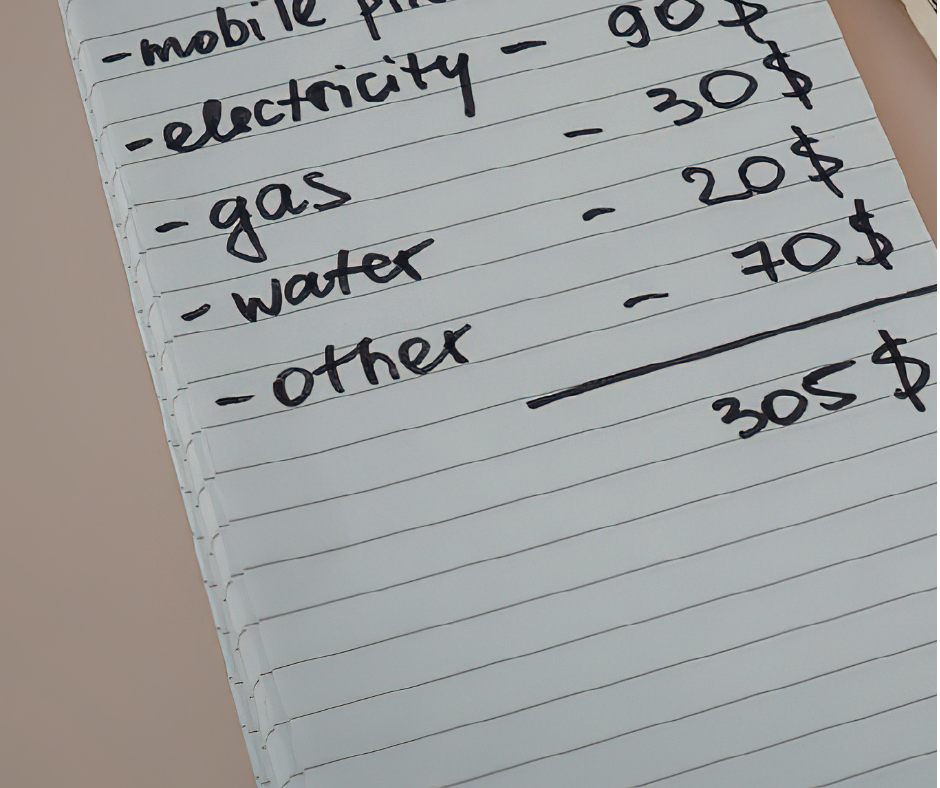 - mobile
- electricity - 90 $
- gas - 30 $
- water - 20 $
- other - 70 $
305 $